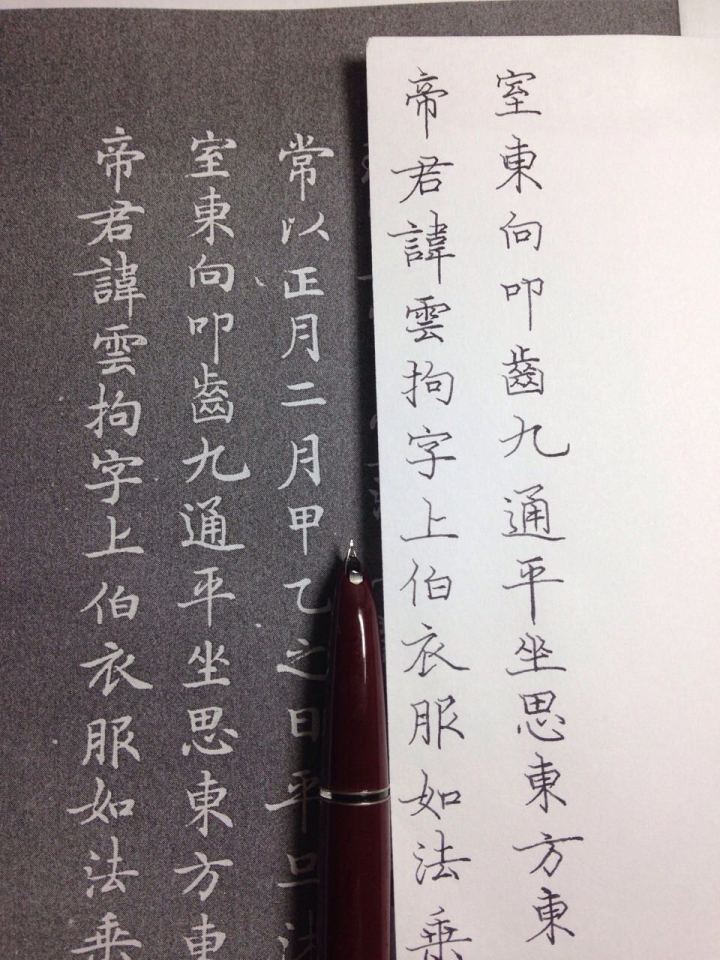 常以正月二月甲乙之日平旦
室東向叩齒九通平坐思東方東
帝君諱雲拘字上伯衣服如法乗
室東向叩齒九通平坐思東方東
帝君諱雲拘字上伯衣服如法乗